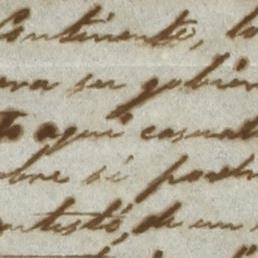 Continente, lo
era su gobier
to aqui casual
obre si podr
ntestó, de un